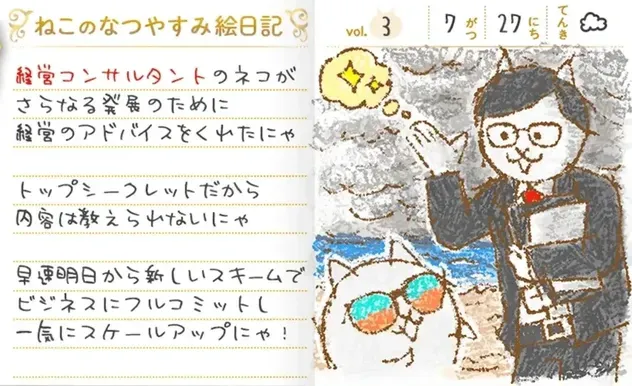 ねこのなつやすみ絵日記
vol. 3 7がつ 27にち てんき
経営コンサルタントのネコが
さらなる発展のために
経営のアドバイスをくれたにゃ
トップシークレットだから
内容は教えられないにゃ
早速明日から新しいスキームで
ビジネスにフルコミットし
一気にスケールアップにゃ!